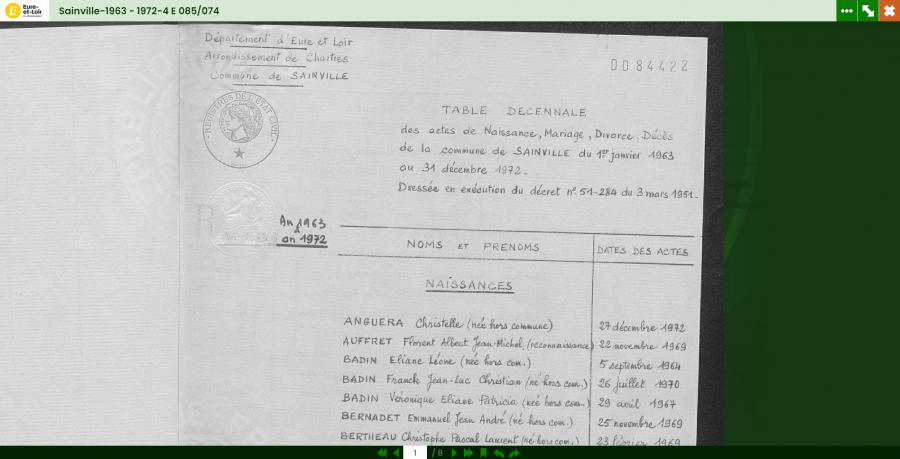 Eure-et-Loir
Sainville-1963 - 1972-4 E 085/074
Département d'Eure et Loir
Arrondissement de Chartres
Commune de SAINVILLE
DD84422
REGISTRES DE L'ETAT CIVIL
TABLE DECENNALE
des actes de Naissance, Mariage, Divorce, Décès
de la commune de SAINVILLE du 1er janvier 1963
au 31 décembre 1972-
Dressée en exécution du décret n° 51-284 du 3 mars 1951-
An 1963
à
an 1972
NOMS ET PRENOMS DATES DES ACTES
NAISSANCES
ANGUERA Christelle (née hors commune) 27 décembre 1972
AUFFRET Florent Albert Jean-Michel, (reconnaissance) 22 novembre 1969
BADIN Eliane Léone (née hors com.) 5 septembre 1964
BADIN Franck Jean-Luc Christian (né hors com.) 26 juillet 1970
BADIN Véronique Eliane Patricia (née hors com.) 29 avril 1967
BERNADET Emmanuel Jean André (né hors com.) 25 novembre 1969
BERTHEAU Christophe Pascal Laurent (né hors com.) 23 février 1969
1 / 8